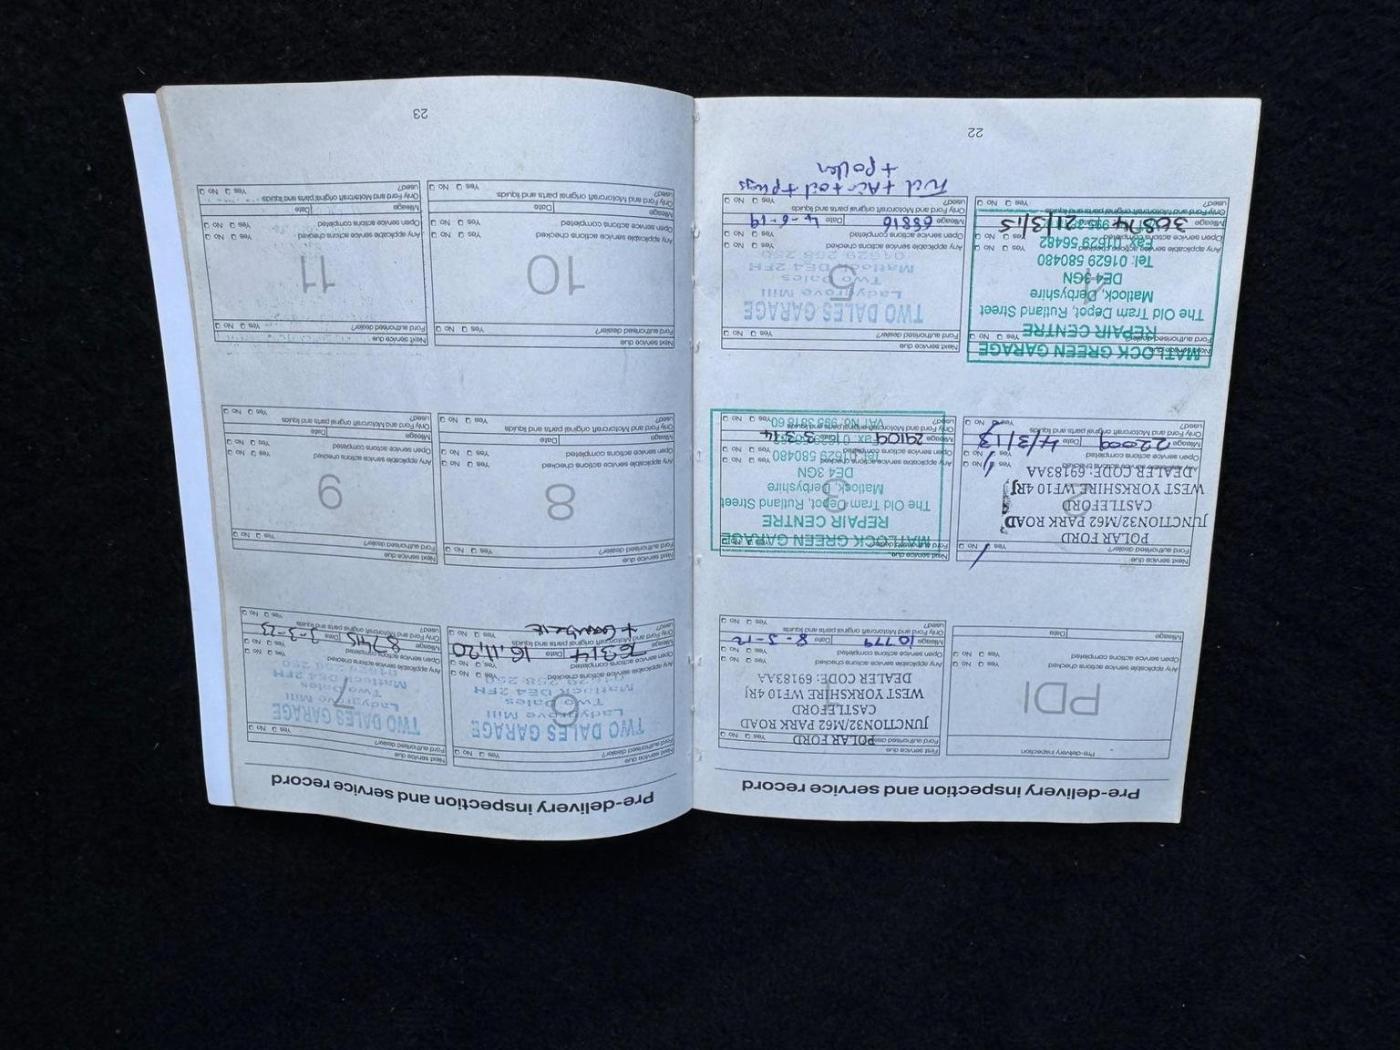 Pre-delivery inspection and service record
Pre-delivery inspection
PDI
Any applicable service actions checked Yes No
Open service actions completed Yes No
Mileage Date
First service due
Ford authorised dealer? Yes No
POLAR FORD
JUNCTION32/M62 PARK ROAD
CASTLEFORD
WEST YORKSHIRE WF10 4RJ
DEALER CODE: 69183AA
1
Any applicable service actions checked Yes No
Open service actions completed Yes No
Mileage 10779 Date 8-5-12
Only Ford and Motorcraft original parts and liquids used? Yes No
Next service due
Ford authorised dealer? Yes No
POLAR FORD
JUNCTION32/M62 PARK ROAD
CASTLEFORD
WEST YORKSHIRE WF10 4RJ
DEALER CODE: 69183AA
2
Any applicable service actions checked Yes No
Open service actions completed Yes No
Mileage 22009 Date 4/3/13
Only Ford and Motorcraft original parts and liquids used? Yes No
Next service due
Ford authorised dealer? Yes No
MATLOCK GREEN GARAGE
REPAIR CENTRE
The Old Tram Depot, Rutland Street
Matlock, Derbyshire
DE4 3GN
Tel: 01629 580480
3
Any applicable service actions checked Yes No
Open service actions completed Yes No
Mileage 29109 Date 3314
Only Ford and Motorcraft original parts and liquids used? Yes No
Next service due
Ford authorised dealer? Yes No
MATLOCK GREEN GARAGE
REPAIR CENTRE
The Old Tram Depot, Rutland Street
Matlock, Derbyshire
DE4 3GN
Tel: 01629 580480
Fax: 01629 56482
4
Any applicable service actions checked Yes No
Open service actions completed Yes No
Mileage 36874 21/3/15
Only Ford and Motorcraft original parts and liquids used? Yes No
Next service due
Ford authorised dealer? Yes No
TWO DALES GARAGE
Ladygrove Mill
Two Dales
Matlock DE4 2FH
01629 258 250
5
Any applicable service actions checked Yes No
Open service actions completed Yes No
Mileage 68816 Date 4-6-19
Only Ford and Motorcraft original parts and liquids used? Yes No
Fuel + Air + oil + plugs
+ pollen
22
Pre-delivery inspection and service record
Next service due
Ford authorised dealer? Yes No
TWO DALES GARAGE
Ladygrove Mill
Two Dales
Matlock DE4 2FH
6
Any applicable service actions checked Yes No
Open service actions completed Yes No
Mileage 76314 Date 16.11.20
Only Ford and Motorcraft original parts and liquids used? Yes No
+ Cambelt
Next service due
Ford authorised dealer? Yes No
TWO DALES GARAGE
Ladygrove Mill
Two Dales
Matlock DE4 2FH
7
Any applicable service actions checked Yes No
Open service actions completed Yes No
Mileage Date 3-3-23
Only Ford and Motorcraft original parts and liquids used? Yes No
Next service due
Ford authorised dealer? Yes No
8
Any applicable service actions checked Yes No
Open service actions completed Yes No
Mileage Date
Only Ford and Motorcraft original parts and liquids used? Yes No
Next service due
Ford authorised dealer? Yes No
9
Any applicable service actions checked Yes No
Open service actions completed Yes No
Mileage Date
Only Ford and Motorcraft original parts and liquids used? Yes No
Next service due
Ford authorised dealer? Yes No
10
Any applicable service actions checked Yes No
Open service actions completed Yes No
Mileage Date
Only Ford and Motorcraft original parts and liquids used? Yes No
Next service due
Ford authorised dealer? Yes No
11
Any applicable service actions checked Yes No
Open service actions completed Yes No
Mileage Date
Only Ford and Motorcraft original parts and liquids used? Yes No
23